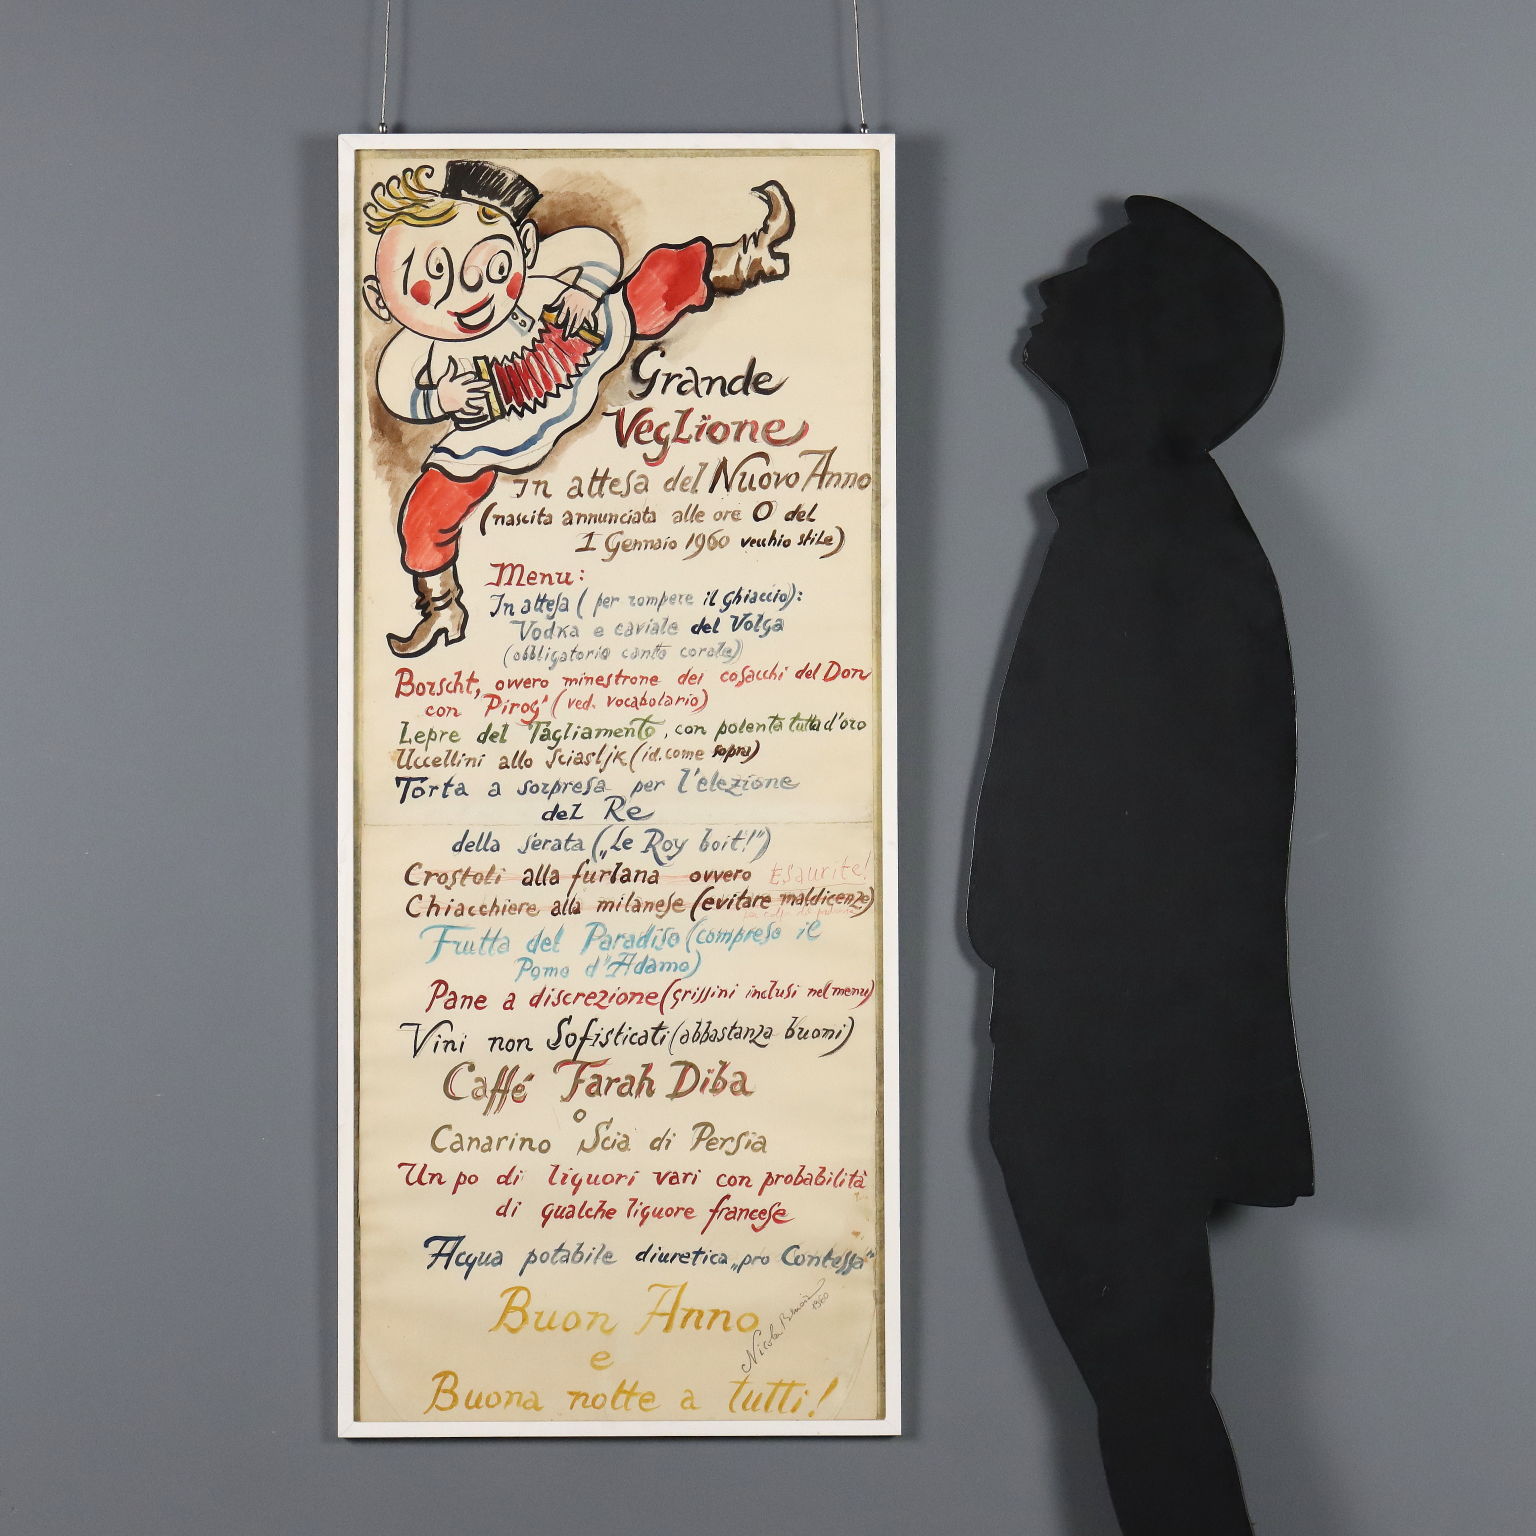 1960
Grande
Veglione
In attesa del Nuovo Anno
(nascita annunciata alle ore 0 del
1 Gennaio 1960 vecchio stile)
Menu:
In attesa (per rompere il ghiaccio):
Vodka e caviale del Volga
(obbligatorio canto corale)
Borscht, ovvero minestrone dei cosacchi del Don
con Pirog' (ved. vocabolario)
Lepre del Tagliamento, con polenta tutta d'oro
Uccellini allo Sciasljk (id. come sopra)
Torta a sorpresa per l'elezione
del Re
della serata („Le Roy boit!")
Crostoli alla furlana ovvero Esaurite!
Chiacchiere alla milanese (evitare maldicenze)
Frutta del Paradiso (compreso il
Pomo d'Adamo)
Pane a discrezione (grissini inclusi nel menu)
Vini non Sofisticati (abbastanza buoni)
Caffé Farah Diba
o
Canarino Scia di Persia
Un po di liquori vari con probabilità
di qualche liquore francese
Acqua potabile diuretica „pro Contessa"
Buon Anno
e
Buona notte a tutti!
Nicola
1960